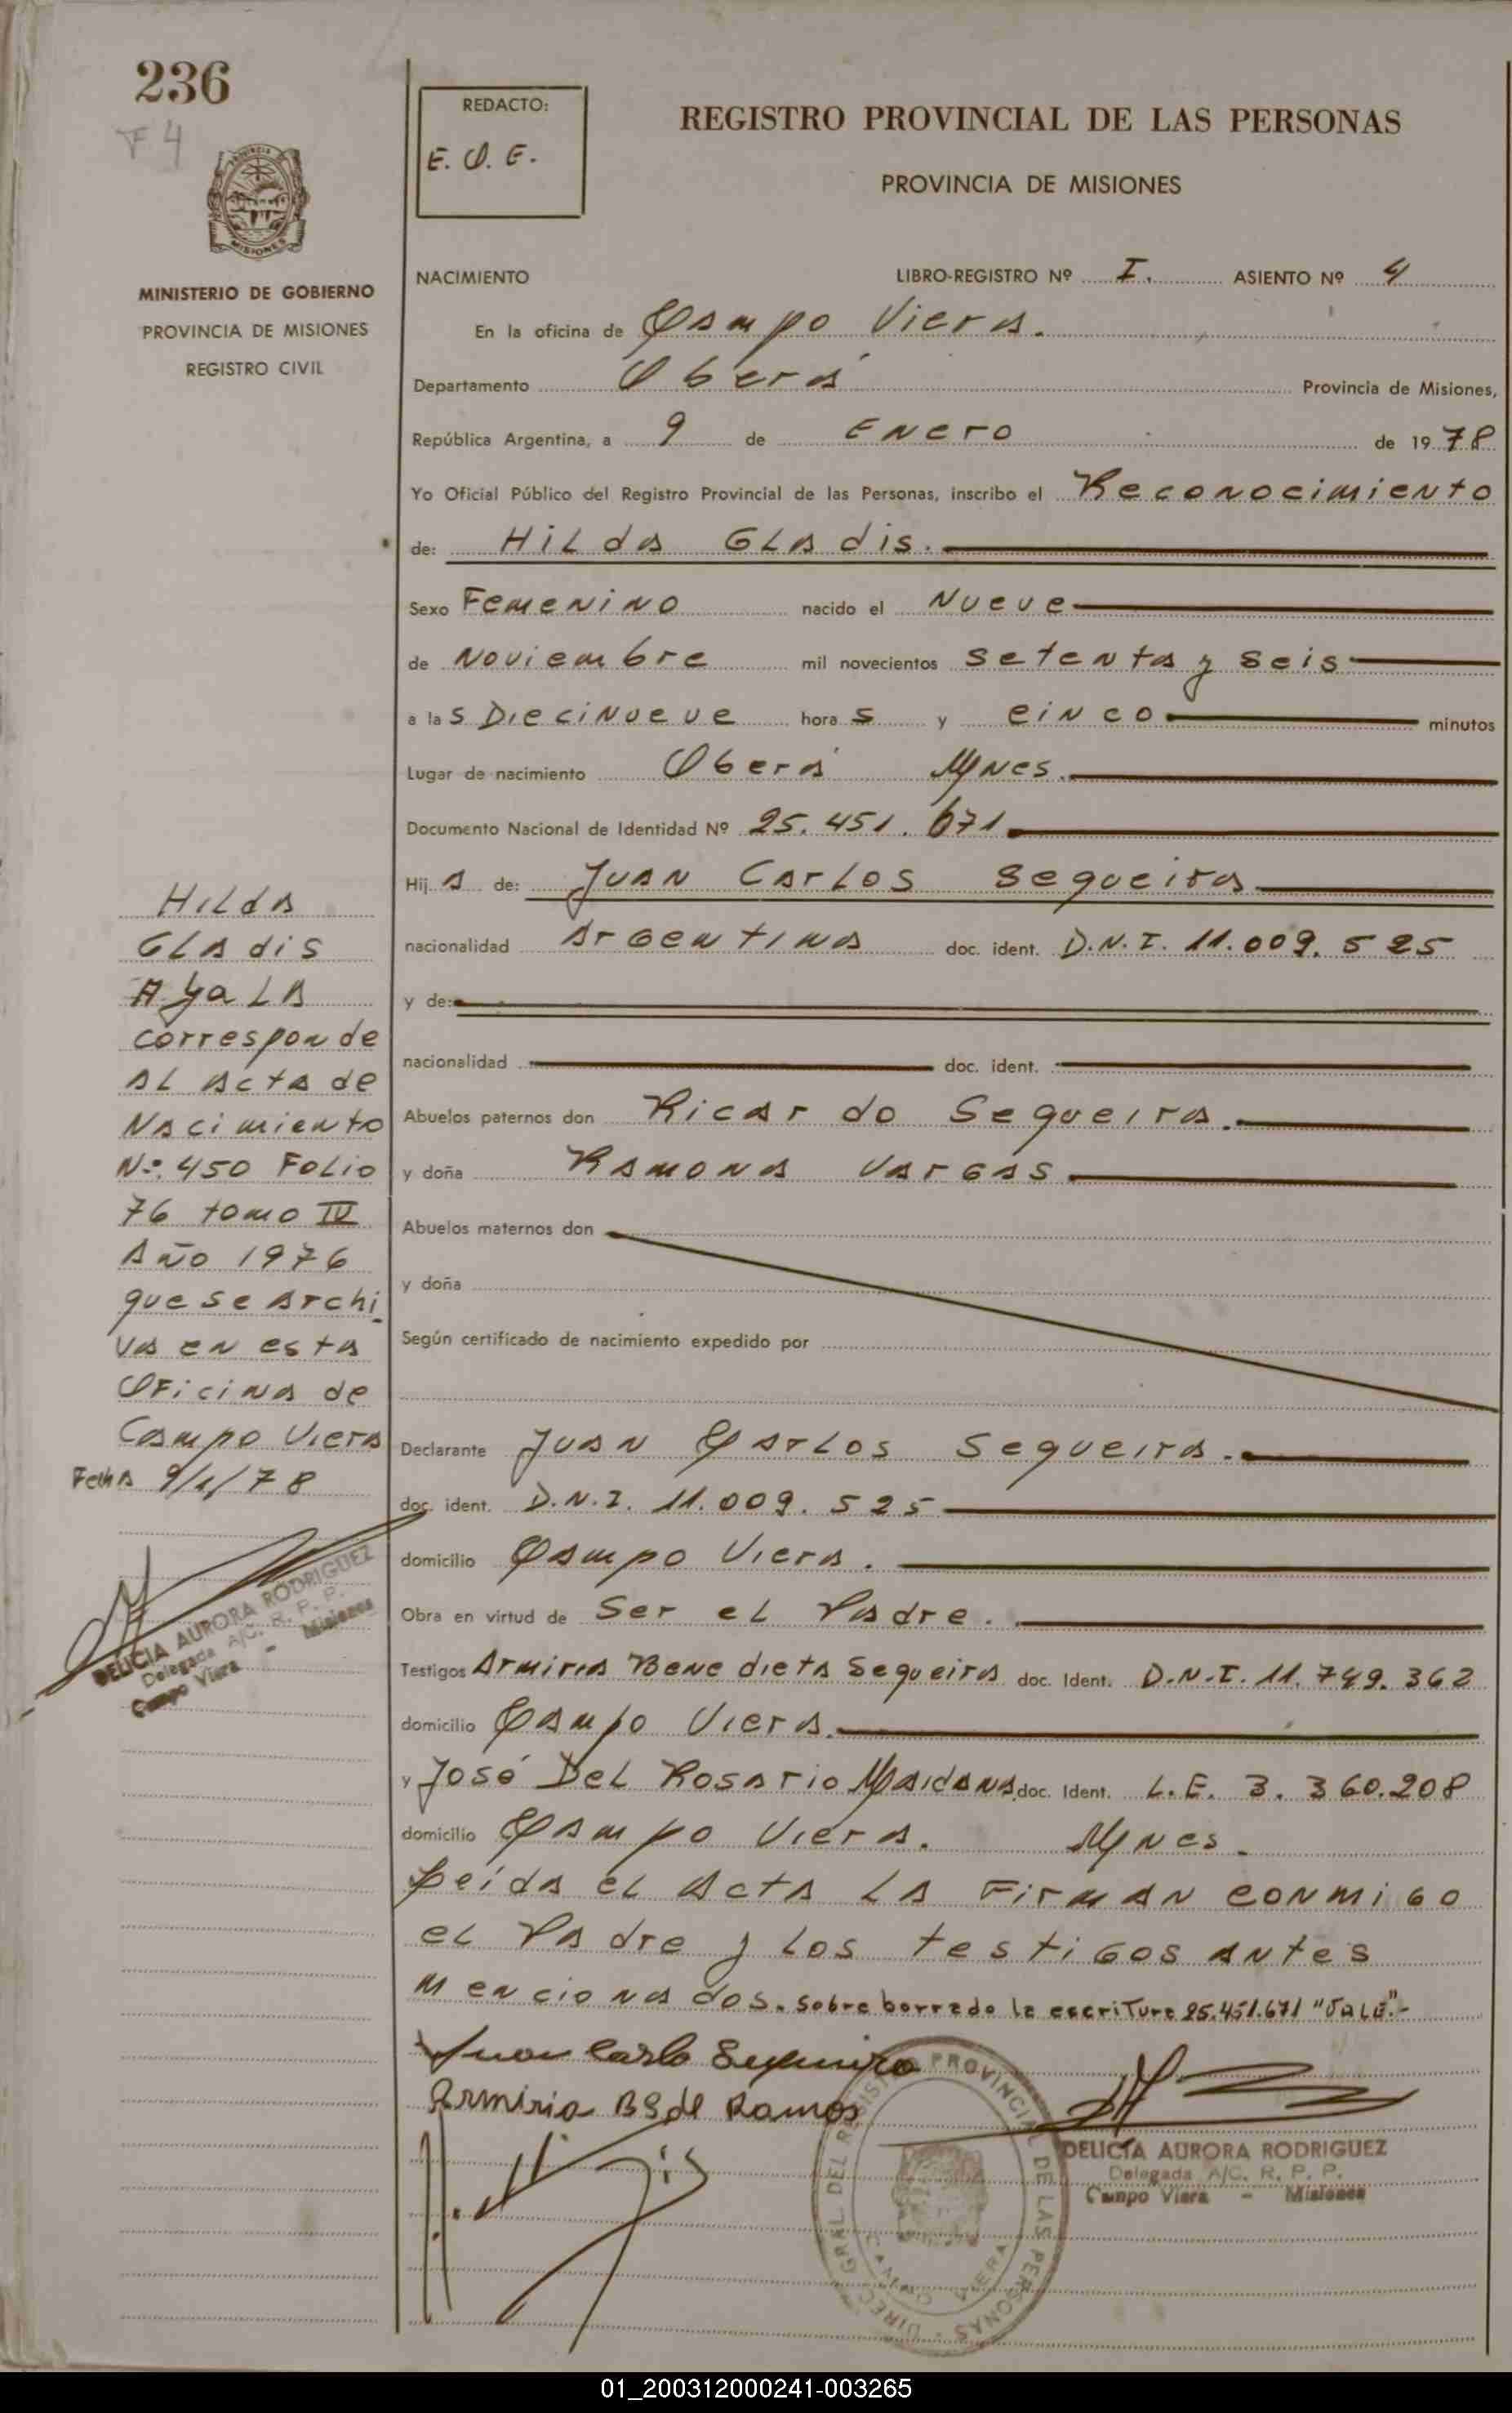 236
F 4
REDACTO:
E. O. E.
REGISTRO PROVINCIAL DE LAS PERSONAS
PROVINCIA DE MISIONES
MISIONES
MINISTERIO DE GOBIERNO
PROVINCIA DE MISIONES
REGISTRO CIVIL
NACIMIENTO LIBRO-REGISTRO Nº I. ASIENTO Nº 4
En la oficina de Campo Viera.
Departamento Oberá Provincia de Misiones,
República Argentina, a 9 de Enero de 1978
Yo Oficial Público del Registro Provincial de las Personas, inscribo el Reconocimiento
de: Hilda Gladis.
Sexo Femenino nacido el Nueve
de Noviembre mil novecientos setenta y seis
a las Diecinueve horas y cinco minutos
Lugar de nacimiento Oberá Mnes.
Documento Nacional de Identidad Nº 25.451.671
Hija de: Juan Carlos Sequeira
nacionalidad Argentina doc. ident. D.N.I. 11.009.525
y de:
nacionalidad doc. ident.
Abuelos paternos don Ricardo Sequeira.
y doña Ramona Vargas
Abuelos maternos don
y doña
Según certificado de nacimiento expedido por
Declarante Juan Carlos Sequeira.
doc. ident. D.N.I. 11.009.525
domicilio Campo Viera.
Obra en virtud de Ser el Padre.
Testigos Armiria Benedicta Sequeira doc. Ident. D.N.I. 11.749.362
domicilio Campo Viera.
y José Del Rosario Maidana doc. Ident. L.E. 3.360.208
domicilio Campo Viera. Mnes.
Leída el acta la firman conmigo
el Padre y los testigos antes
mencionados. sobre borrado la escritura 25.451.671 "VALE".-
Juan Carlo Sequeira
Armiria BS de Ramos
DIREC. GRAL. DEL REGISTRO PROVINCIAL DE LAS PERSONAS
CAMPO VIERA
DELICIA AURORA RODRIGUEZ
Delegada A/C. R. P. P.
Campo Viera - Misiones
Hilda
Gladis
Ayala
corresponde
al acta de
Nacimiento
Nº. 450 Folio
76 tomo IV
Año 1976
que se archi
va en esta
Oficina de
Campo Viera
Fecha 9/1/78
DELICIA AURORA RODRIGUEZ
Delegada A/C. R. P. P.
Campo Viera - Misiones
01_200312000241-003265